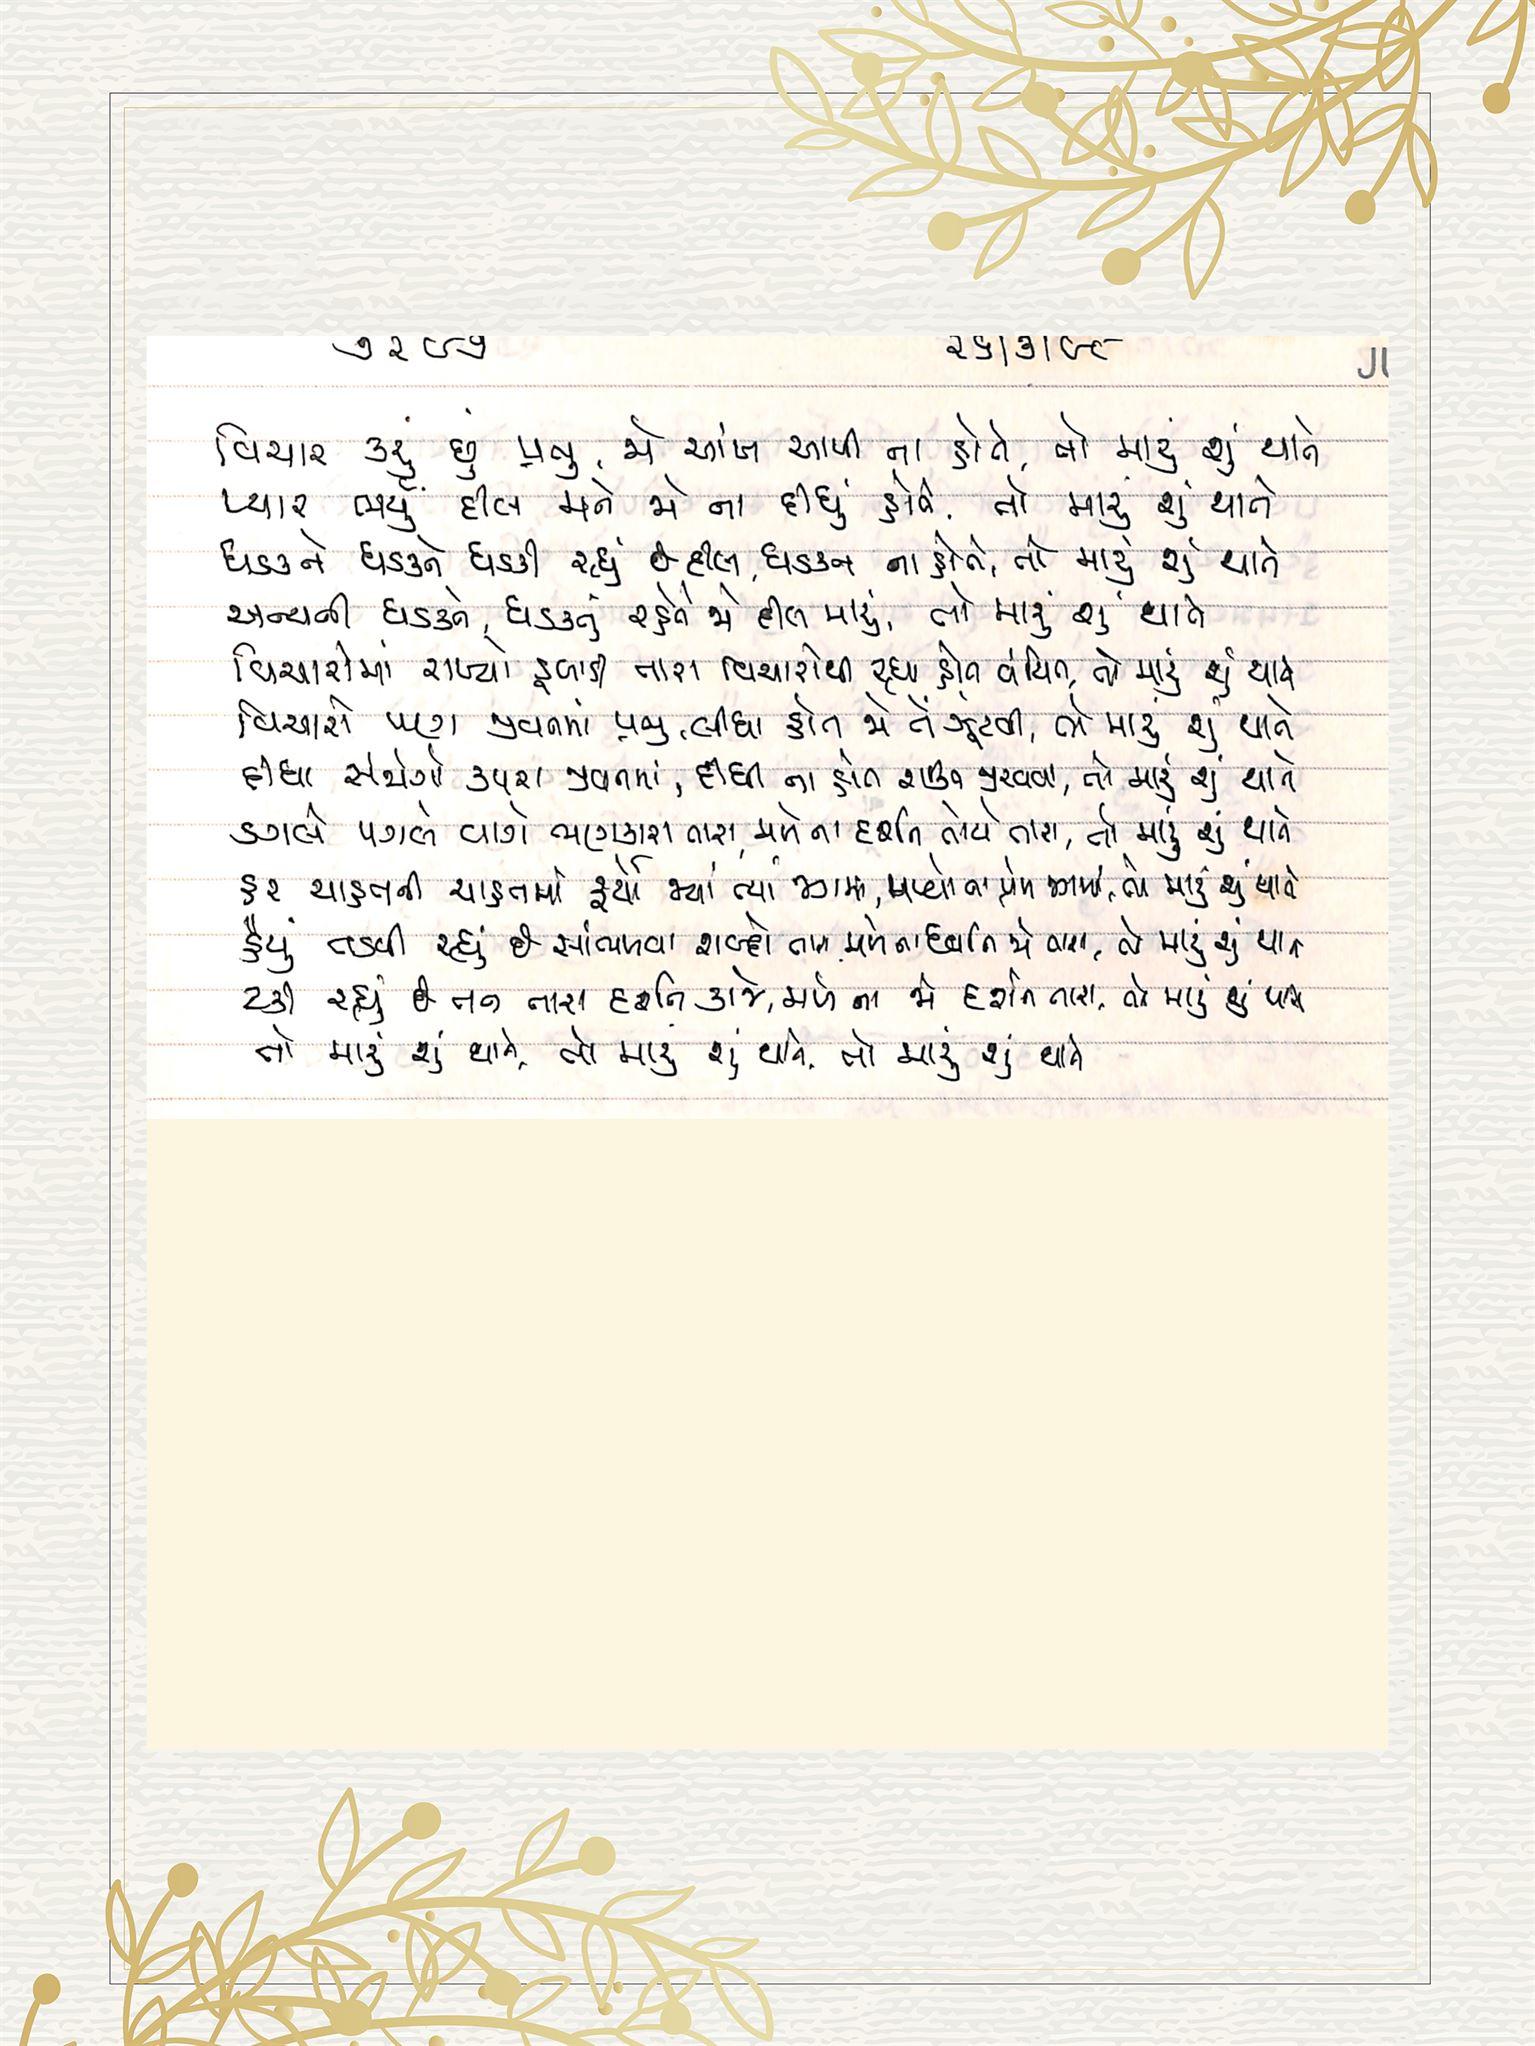 ૭૨૯૫ ૨૫/૩/૯૮
વિચાર કરું છું પ્રભુ, જો આંખ આપી ના હોતે, તો મારું શું થાતે
પ્યાર ભર્યું દીલ મને જો ના દીધું હોતે, તો મારું શું થાતે
ધડકને ધડકને ધડકી રહ્યું છે દીલ, ધડકન ના હોતે, તો મારું શું થાતે
અન્યની ધડકને, ધડકતું રહેતે જો દીલ મારું, તો મારું શું થાતે
વિચારોમાં રાખ્યો ડૂબાડી તારા વિચારોથી રહ્યા હોત વંચિત, તો મારું શું થાતે
વિચારો પણ જીવનમાં પ્રભુ, લીધા હોત જો તેં ઝૂંટવી, તો મારું શું થાતે
દીધા સંજોગો કપરા જીવનમાં, દીધી ના હોત શક્તિ જીરવવા, તો મારું શું થાતે
ડગલે પગલે વાગે ભણકારા તારા, મળે ના દર્શન તોયે તારા, તો મારું શું થાતે
હર ચાહતની ચાહતમાં ફર્યો જ્યાં ત્યાં જગમાં, મળ્યો ના પ્રેમ જગમાં, તો મારું શું થાતે
હૈયું તડપી રહ્યું છે સાંભળવા શબ્દો તારા, મળે ના ધ્વનિ જો તારા, તો મારું શું થાત
ટકી રહ્યું છે તન તારા દર્શન કાજે, મળે ના જો દર્શન તારા, તો મારું શું થાતે
તો મારું શું થાતે, તો મારું શું થાતે, તો મારું શું થાતે